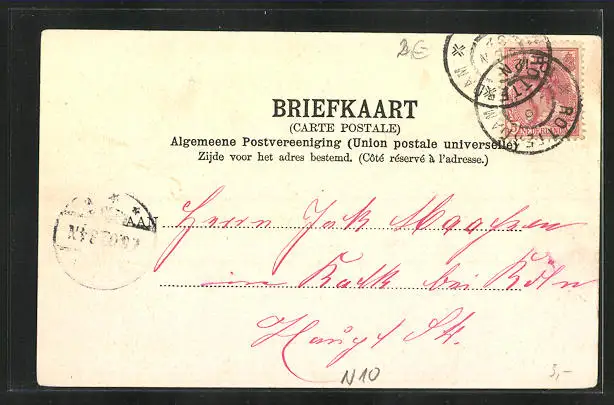 2€
ROTTERDAM
NEDERLAND
BRIEFKAART
(CARTE POSTALE)
Algemeene Postvereeniging (Union postale universelle)
Zijde voor het adres bestemd. (Côté réservé à l'adresse.)
AAN Herrn Jak
in Kalk bei Köln
Haupt Str.
N10
3,-